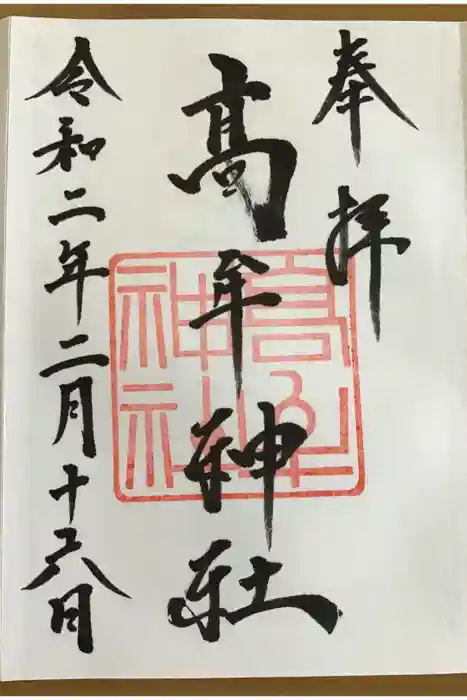 奉拝
髙牟神社
令和二年二月十六日
高牟
神社